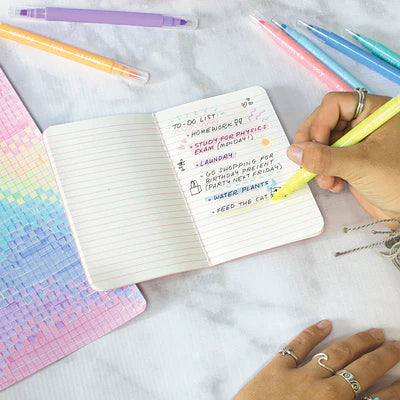 TO-DO LIST
• HOMEWORK
• STUDY FOR PHYSICS
EXAM (MONDAY!)
• LAUNDRY
• GO SHOPPING FOR
BIRTHDAY PRESENT
(PARTY NEXT FRIDAY)
• WATER PLANTS
• FEED THE CAT